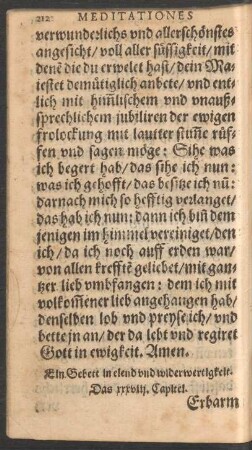 212 MEDITATIONES
verwunderlichs vnd allerschönstes
angesicht/ voll aller süssigkeit/ mit
denē die du erwelet hast/ dein Ma-
iestet demütiglich anbete/ vnd ent-
lich mit him̅lischem vnd vnauß-
sprechlichem jubiliren der ewigen
frolockung mit lautter stim̅e růf-
fen vnd sagen möge: Sihe was
ich begert hab/ das sihe ich nun:
was ich gehofft/ das besitze ich nū:
darnach mich so hefftig verlanget/
das hab ich nun: dann ich bin̄ dem
jenigen im himmel vereiniget/ den
ich/ da ich noch auff erden war/
von allen krefftē geliebet/ mit gan-
tzer lieb vmbfangen: dem ich mit
volkom̅ener lieb angehangen hab/
denselben lob vnd preyse ich/ vnd
bette jn an/ der da lebt vnd regiret
Gott in ewigkeit. Amen.
Ein Gebett in elend vnd widerwertigkeit.
Das xxxviij. Capitel.
Erbarm